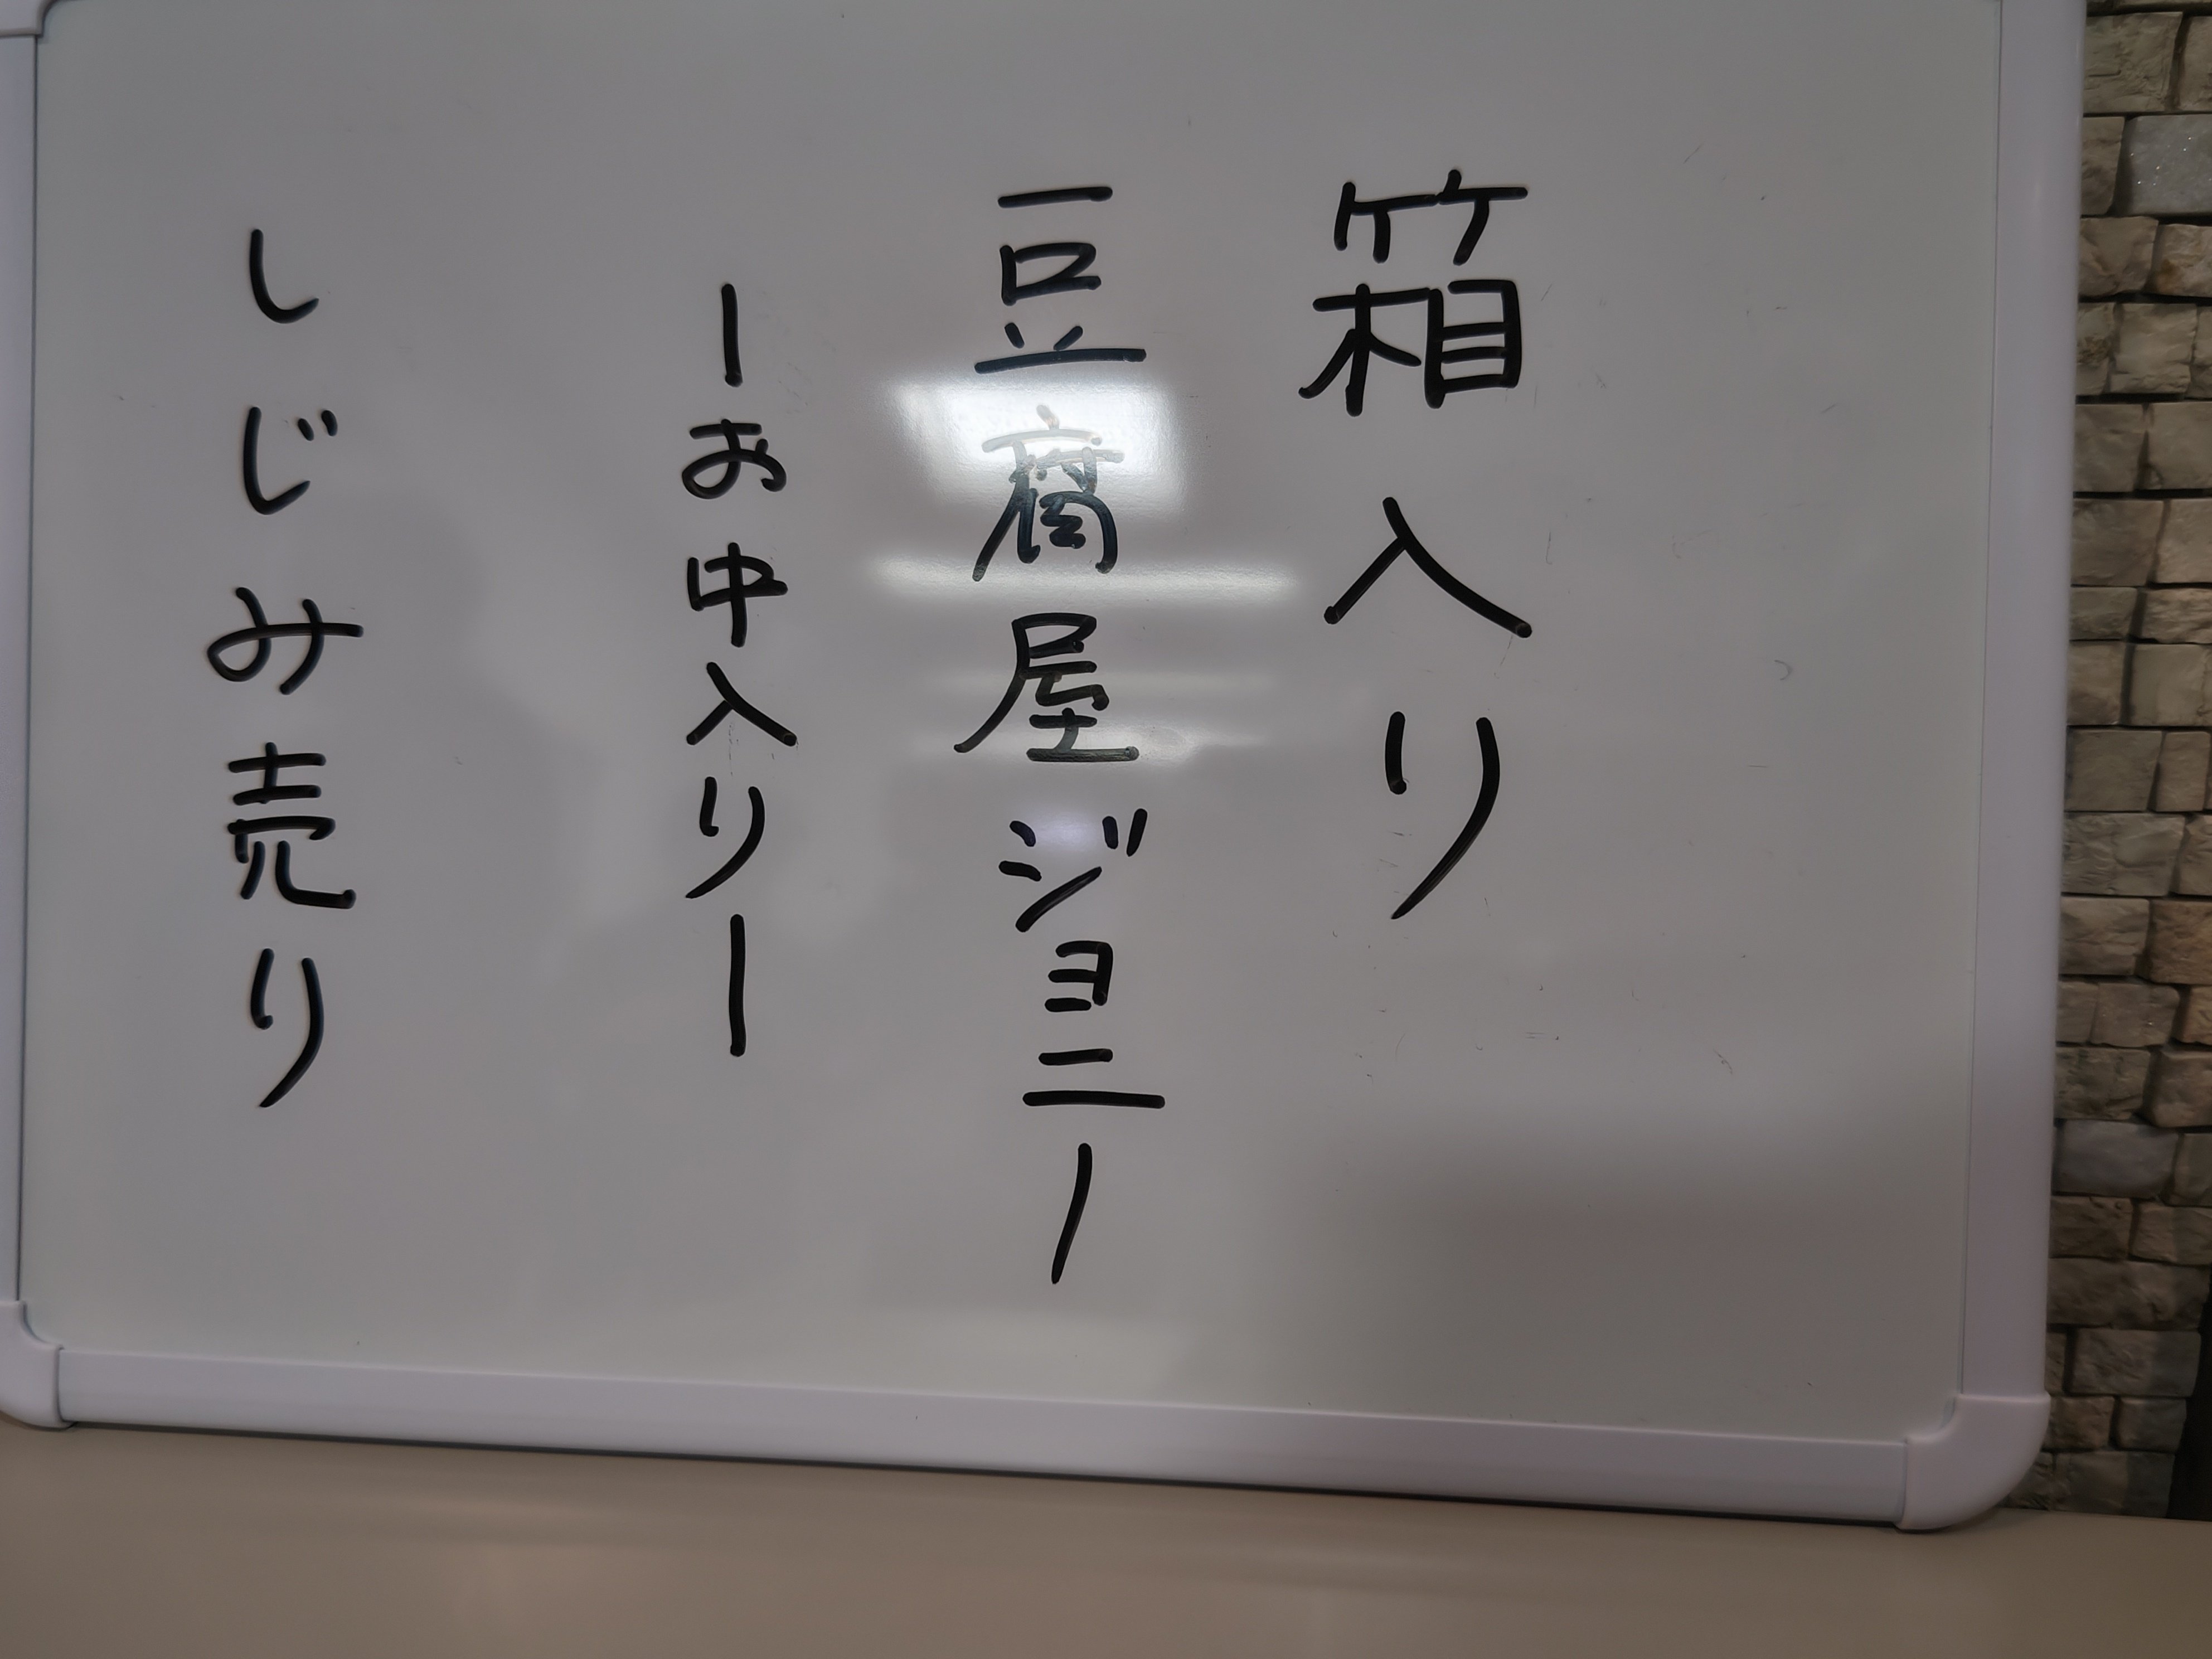 箱入り
豆腐屋ジョニー
ーお中入りー
しじみ売り